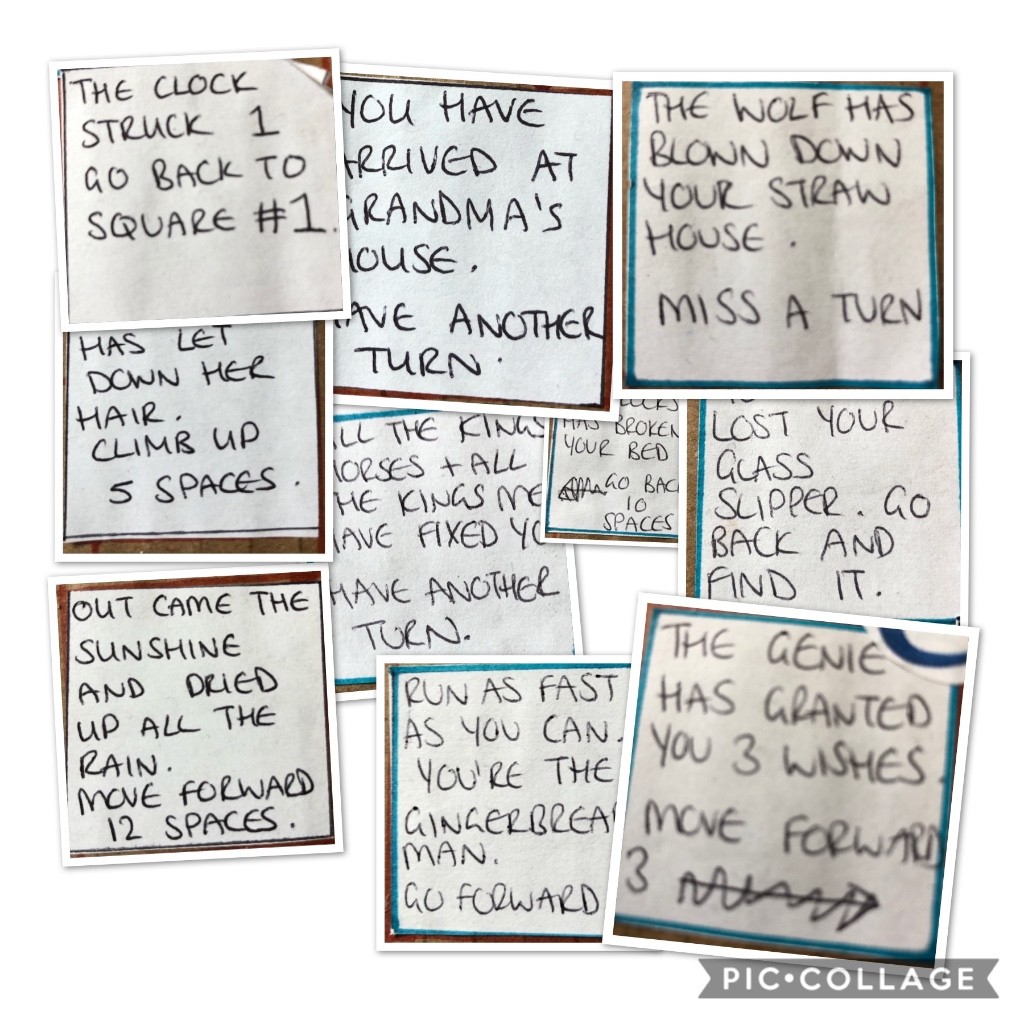 THE CLOCK
STRUCK 1
GO BACK TO
SQUARE #1.
YOU HAVE
ARRIVED AT
GRANDMA'S
HOUSE.
HAVE ANOTHER
TURN.
THE WOLF HAS
BLOWN DOWN
YOUR STRAW
HOUSE.
MISS A TURN
HAS LET
DOWN HER
HAIR.
CLIMB UP
5 SPACES.
ALL THE KINGS
HORSES + ALL
THE KINGS ME
HAVE FIXED YO
HAVE ANOTHER
TURN.
HAS BROKEN
YOUR BED
GO BAC
10
SPACES
LOST YOUR
GLASS
SLIPPER. GO
BACK AND
FIND IT.
OUT CAME THE
SUNSHINE
AND DRIED
UP ALL THE
RAIN.
MOVE FORWARD
12 SPACES.
RUN AS FAST
AS YOU CAN.
YOU'RE THE
GINGERBREA
MAN.
GO FORWARD
THE GENIE
HAS GRANTED
YOU 3 WISHES.
MOVE FORWARD
3
PIC•COLLAGE